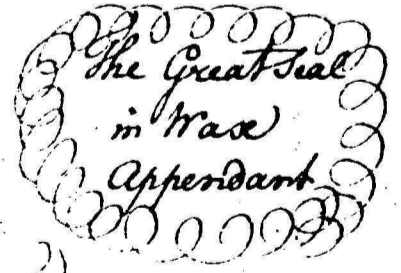 The Great Seal
in Wax
Appendant